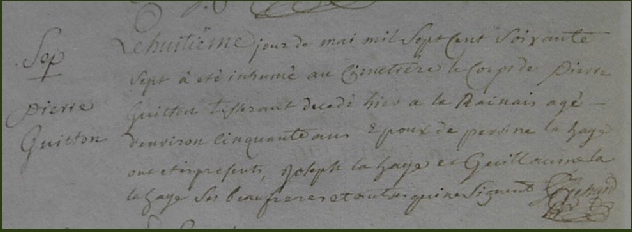 Sep
Pierre
Guitton
Le huitième jour de mai mil Sept Cent Soixante
Sept à été inhumé au Cimetière le Corps de Pierre
Guitton tisserant decedé hier a la Rainais agé
denviron Cinquante ans Epoux de perinne la haye
ont étés presents, Joseph la haye et Guillaume la
la haye Ses beaufreres et autres qui ne Signent